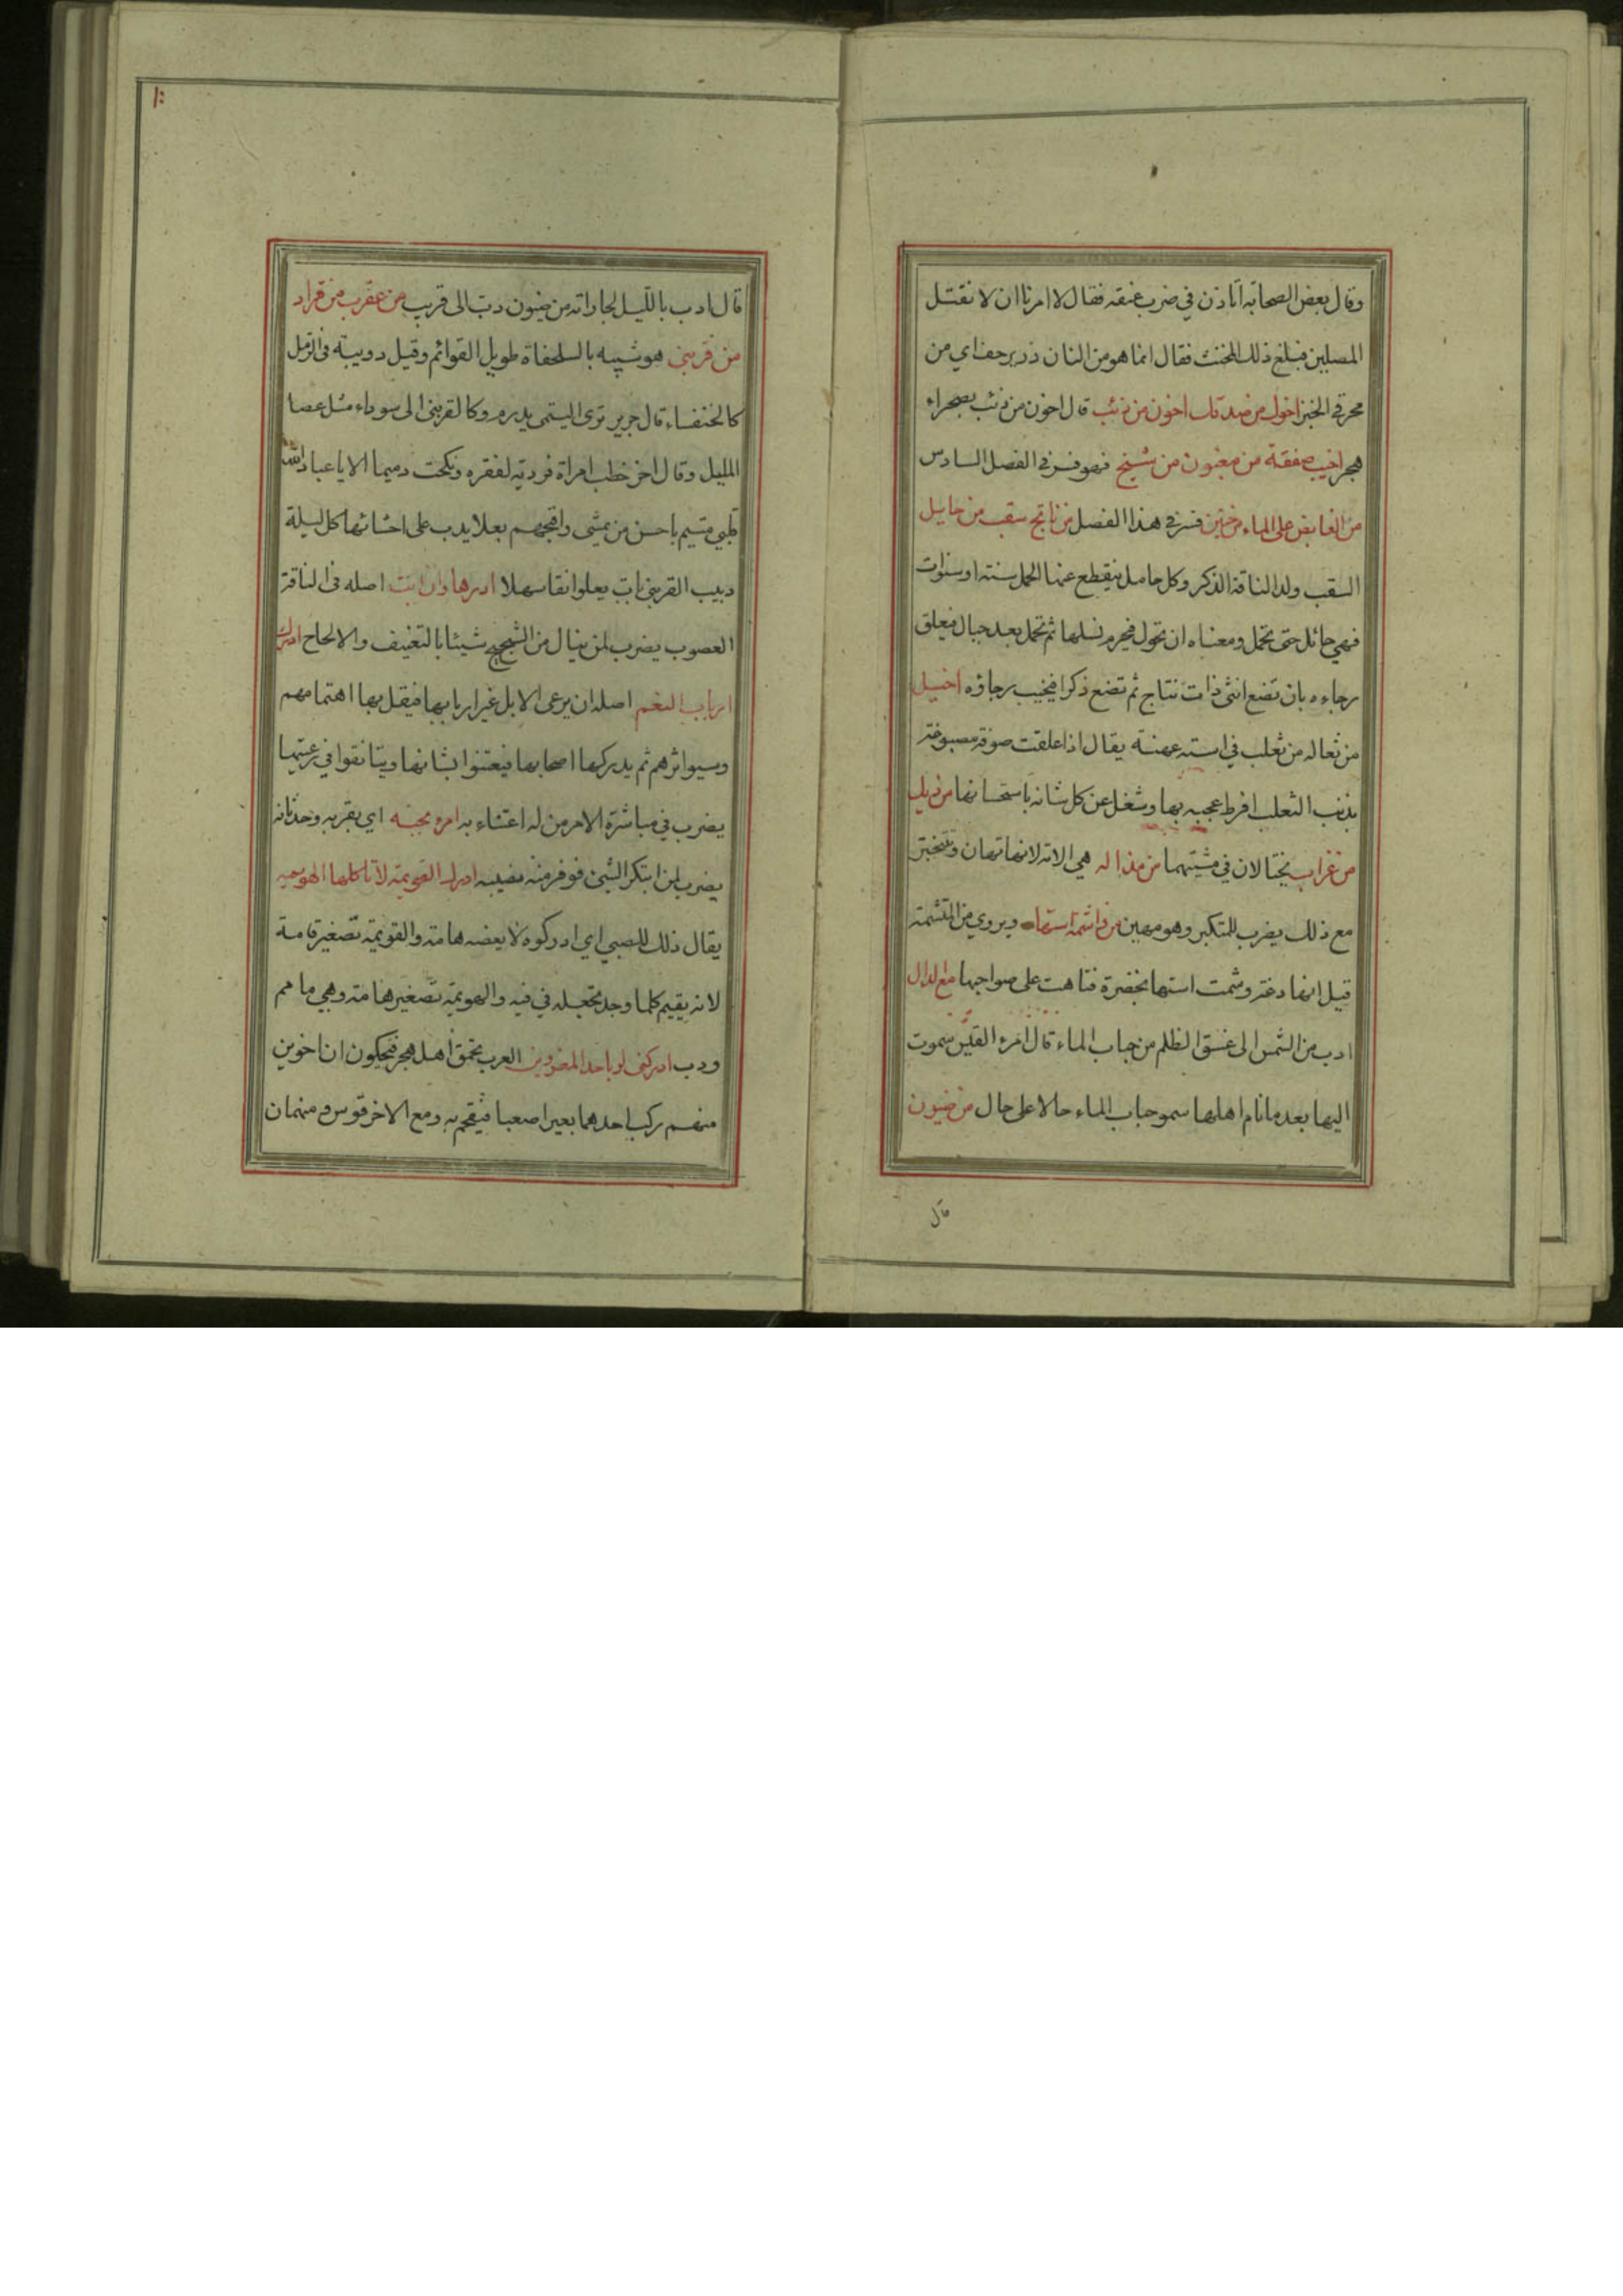 وقال بعض الصحابة اتاذن في ضرب عنقه فقال لا امرنا ان لا نقتل
المصلين فبلغ ذلك المخنث فقال انما هو من النان در برحف اي من
محرقي الخبز اخون من ذئب قال اخون من ذئب بصحراء
هجر اخيب صفقة من مغبون من شيخ فهو فسر في الفصل السادس
من القابض على الماء من حنين فسر في هذا الفصل من ناتج سقب من حايل
السقب ولد الناقة الذكر وكل حامل ينقطع عنها الحمل سنة او سنوات
فهي حائل حتى تحمل ومعناه ان تحول فيحرم نسلها ثم تحمل بعد حبال فيعلق
رجاءه بان تضع انثى ذات نتاج ثم تضع ذكرا فيخيب رجاؤه اخيل
من ثعاله من ثعلب في استه عهنة يقال اذا علقت صوفة مصبوغة
بذنب الثعلب افرط عجبه بها وشغل عن كل شانه باستحسانها من ديك
من غراب يختالان في مشيتهما من مذاله هي الامة لانها تهان وتتبختر
مع ذلك يضرب للمتكبر وهو مهين من واشمة استها ويروى من المتشمة
قيل انها دغة وشمت استها بخضرة فتاهت على صواحبها مع الدال
ادب من الشمس الى غسق الظلم من حباب الماء قال امرء القيس سموت
اليها بعد ما نام اهلها سمو حباب الماء حالا على حال من ضيون
قال
قال ادب بالليل لجاراته من ضيون دب الى قريب من عقرب من قراد
من قرنبى هو شبيه بالسلحفاة طويل القوائم وقيل دويبة في الرمل
كالخنفساء قال جرير ترى التيمى يدرم وكالقرنبى الى سوداء مثل عصا
المليل وقال اخر خطب امراة فردته لفقره ونكحت دميما الا يا عباد الله
قلبي متيم باحسن من يمشى واقبحهم بعلا يدب على احشائها كل ليلة
دبيب القرنبى بات يعلو نقا سهلا ادرها وان ابت اصله في الناقة
العصوب يضرب لمن ينال من الشحيح شيئا بالتعنيف والالحاح ادرك
ارباب النعم اصله ان يرعى الابل غير اربابها فيقل بها اهتمامهم
وسيواثرهم ثم يدركها اصحابها فيعتنوا بشانها ويتانقوا في رعيتها
يضرب في مباشرة الامر من له اعتناء به امره بجنه اي بقربه وحدثانه
يضرب لمن ابتكر الشئ فوفر منه نصيبه ادرك القويمة لا تاكلها الهويمة
يقال ذلك للصبي اي ادركوه لا يعضه هامة والقويمة تصغير قامة
لانه يقيم كلما وجد تجعله في فيه والهويمة تصغير هامة وهي ما هم
ودب ادركنى ولو باحد المغروين العرب تحمق اهل هجر فيحكون ان اخوين
منهم ركب احدهما بعيرا صعبا فيقحم به ومع الاخر قوس و منهمان